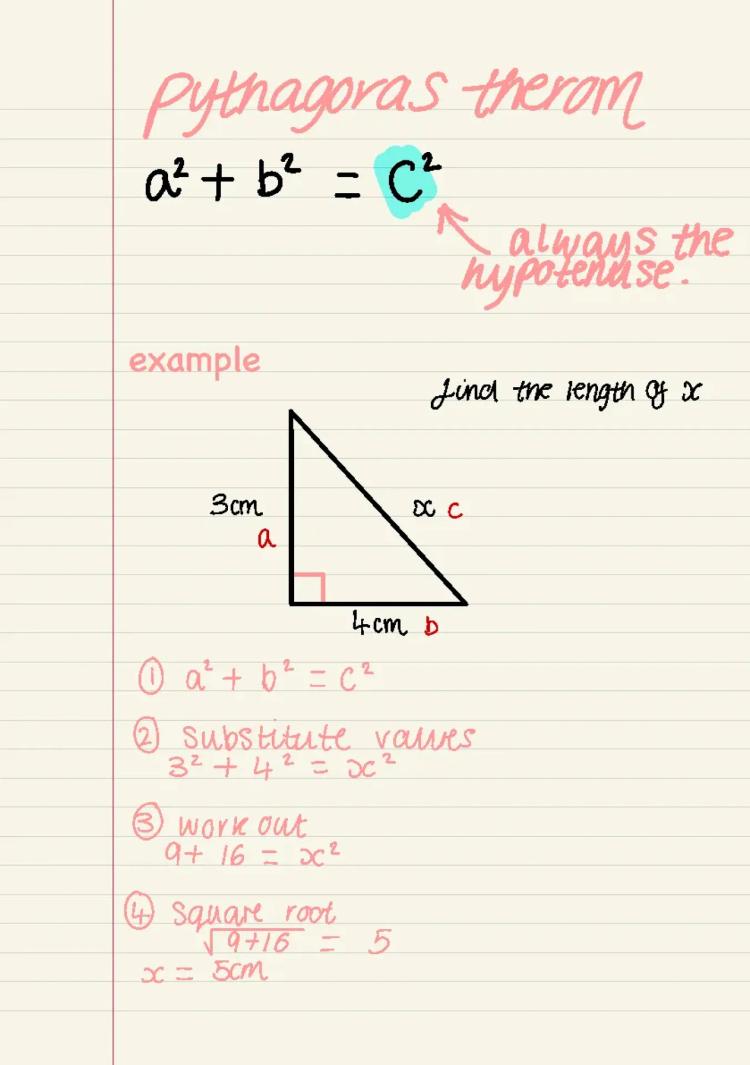 Pythagoras therom
a² + b² = C²
always the
hypotenuse.
example
find the length of x
3cm
a
x c
4cm b
① a² + b² = c²
② Substitute values
3² + 4² = x²
③ work out
9 + 16 = x²
④ Square root
√9+16 = 5
x = 5cm